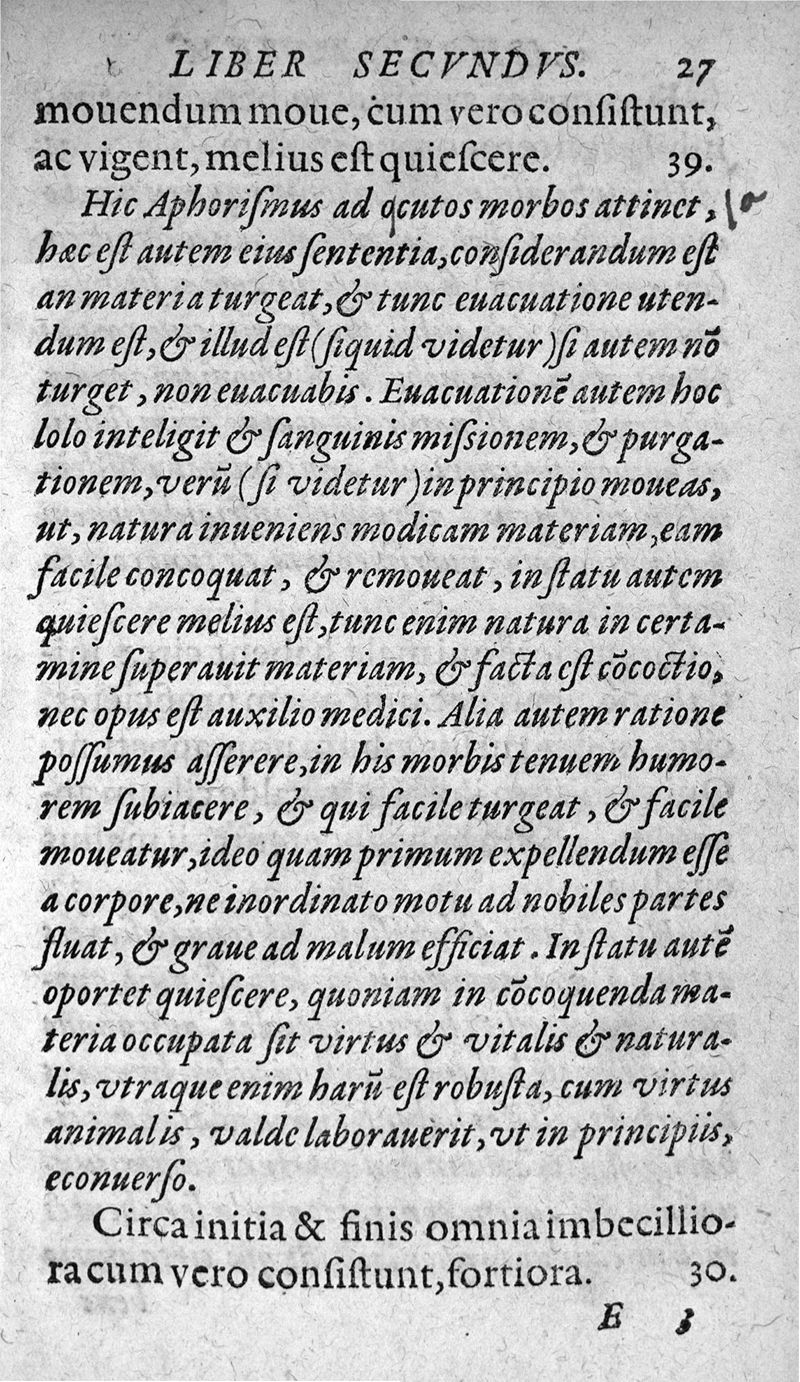 LIBER SECVNDVS. 27
mouendum moue, cum vero consiſtunt,
ac vigent, melius eſt quieſcere. 39.
Hic Aphoriſmus ad acutos morbos attinet,
hæc eſt autem eius ſententia, conſiderandum eſt
an materia turgeat, & tunc euacuatione uten-
dum eſt, & illud eſt (ſiquid videtur) ſi autem nō
turget, non euacuabis. Euacuationē autem hoc
lolo inteligit & ſanguinis miſsionem, & purga-
tionem, verū (ſi videtur) in principio moueas,
ut, natura inueniens modicam materiam, eam
facile concoquat, & remoueat, in ſtatu autem
quieſcere melius eſt, tunc enim natura in certa-
mine ſuperauit materiam, & facta eſt cōcoctio,
nec opus eſt auxilio medici. Alia autem ratione
poſſumus aſſerere, in his morbis tenuem humo-
rem ſubiacere, & qui facile turgeat, & facile
moueatur, ideo quam primum expellendum eſſe
a corpore, ne inordinato motu ad nobiles partes
fluat, & graue ad malum efficiat. In ſtatu autē
oportet quieſcere, quoniam in cōcoquenda ma-
teria occupata ſit virtus & vitalis & natura-
lis, vtraque enim harū eſt robuſta, cum virtus
animalis, valde laborauerit, vt in principiis,
econuerſo.
Circa initia & finis omnia imbecillio-
ra cum vero conſiſtunt, fortiora. 30.
E 3